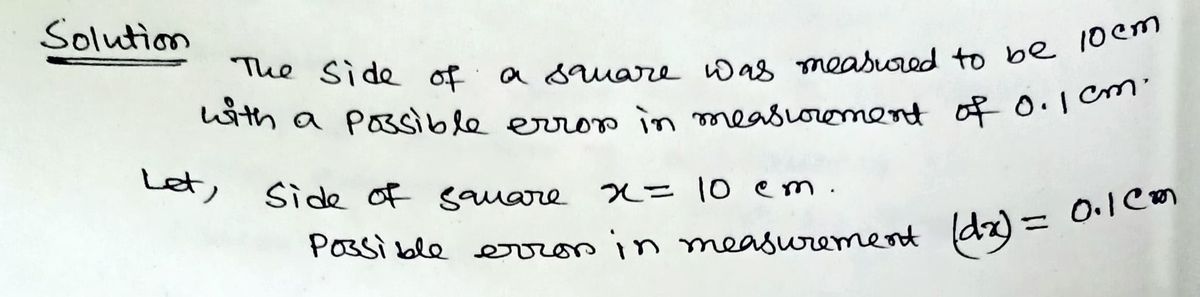 Solution
The side of a square was measured to be 10 cm
with a possible error in measurement of 0.1 cm.
Let, Side of square x = 10 cm.
Possible error in measurement (dx) = 0.1 cm